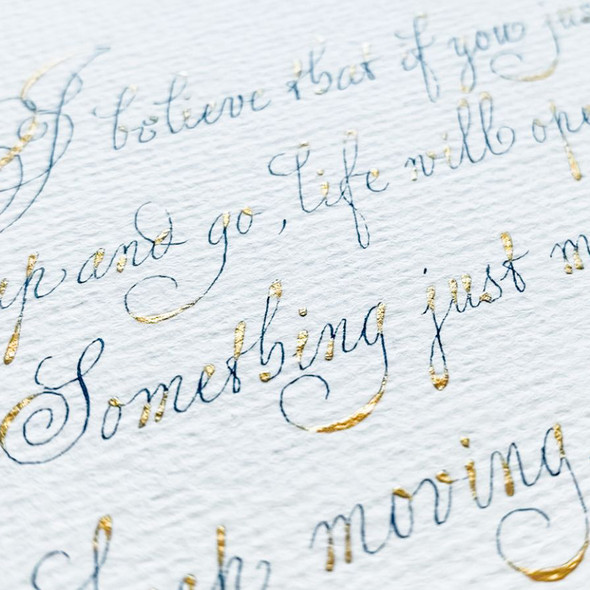 I believe that if you jus
up and go, life will ope
Something just m
moving